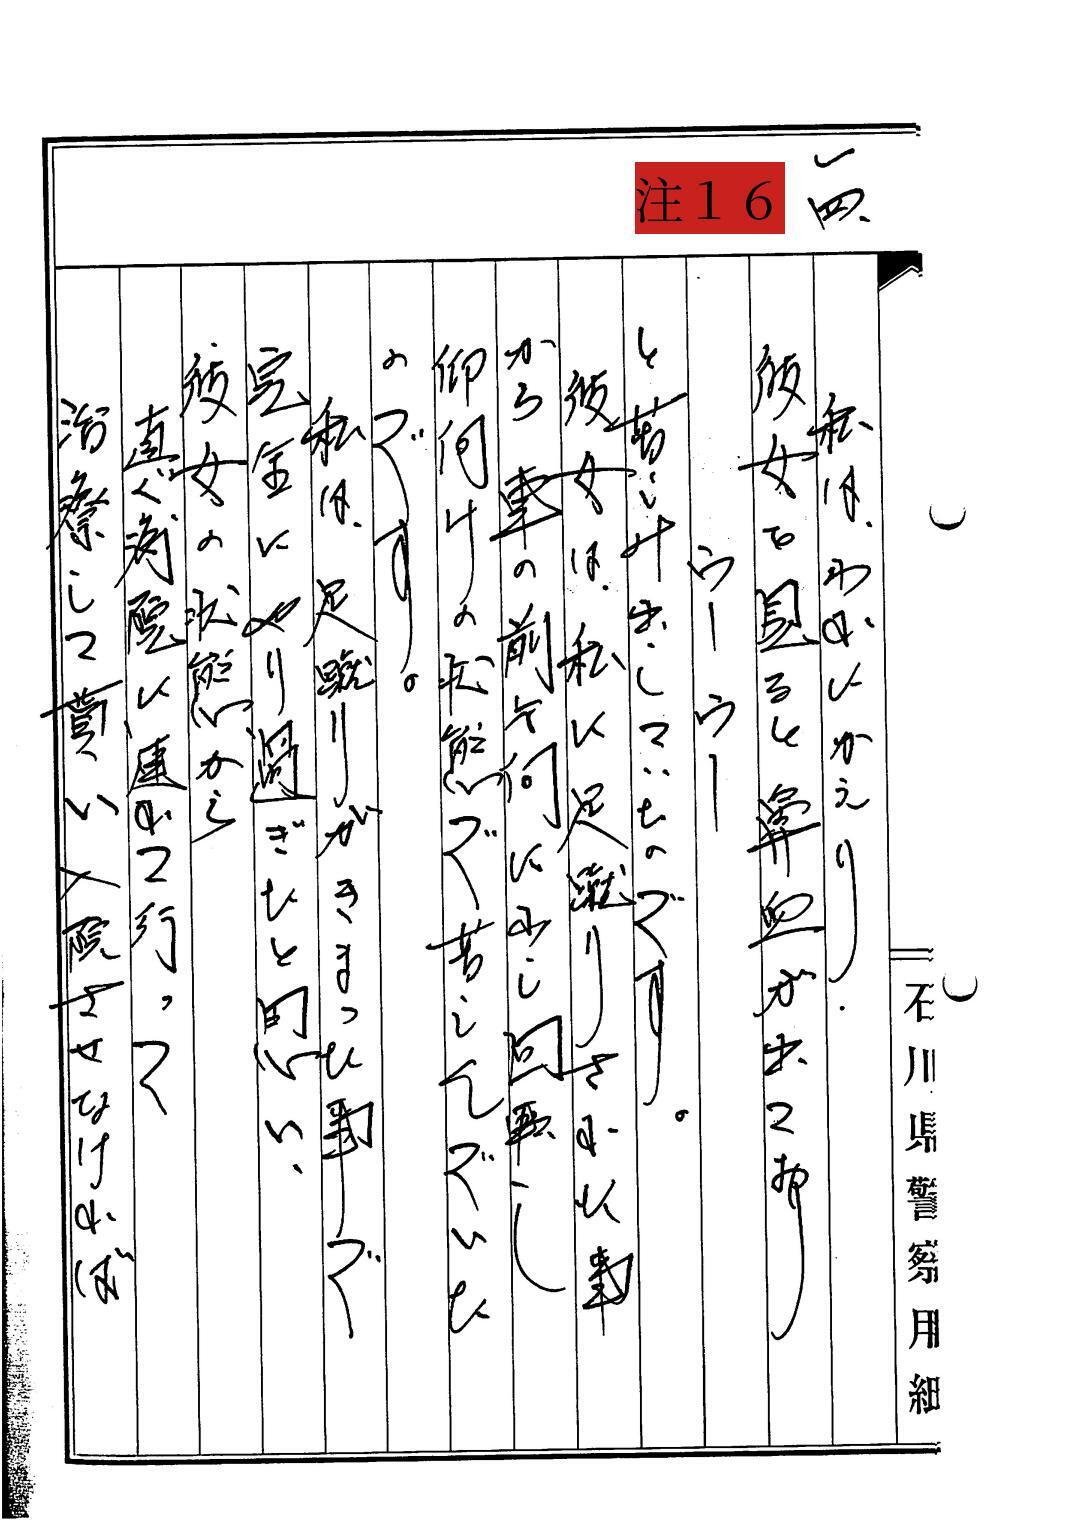 一四
注１６
私は、われにかえり、
彼女を見ると鼻血が出て おり
ウーウー
と苦しみ出していたのです。
彼女は、私に足蹴りされた事
から 車の前を向にし 回転し
仰向けの状態で苦しんでいた
のです。
私は、足蹴りがきまった事で
完全にやり過ぎたと思い、
彼女の状態から
直ぐ病院に連れて行って
治療して貰い入院させなければ
石川県警察用紙